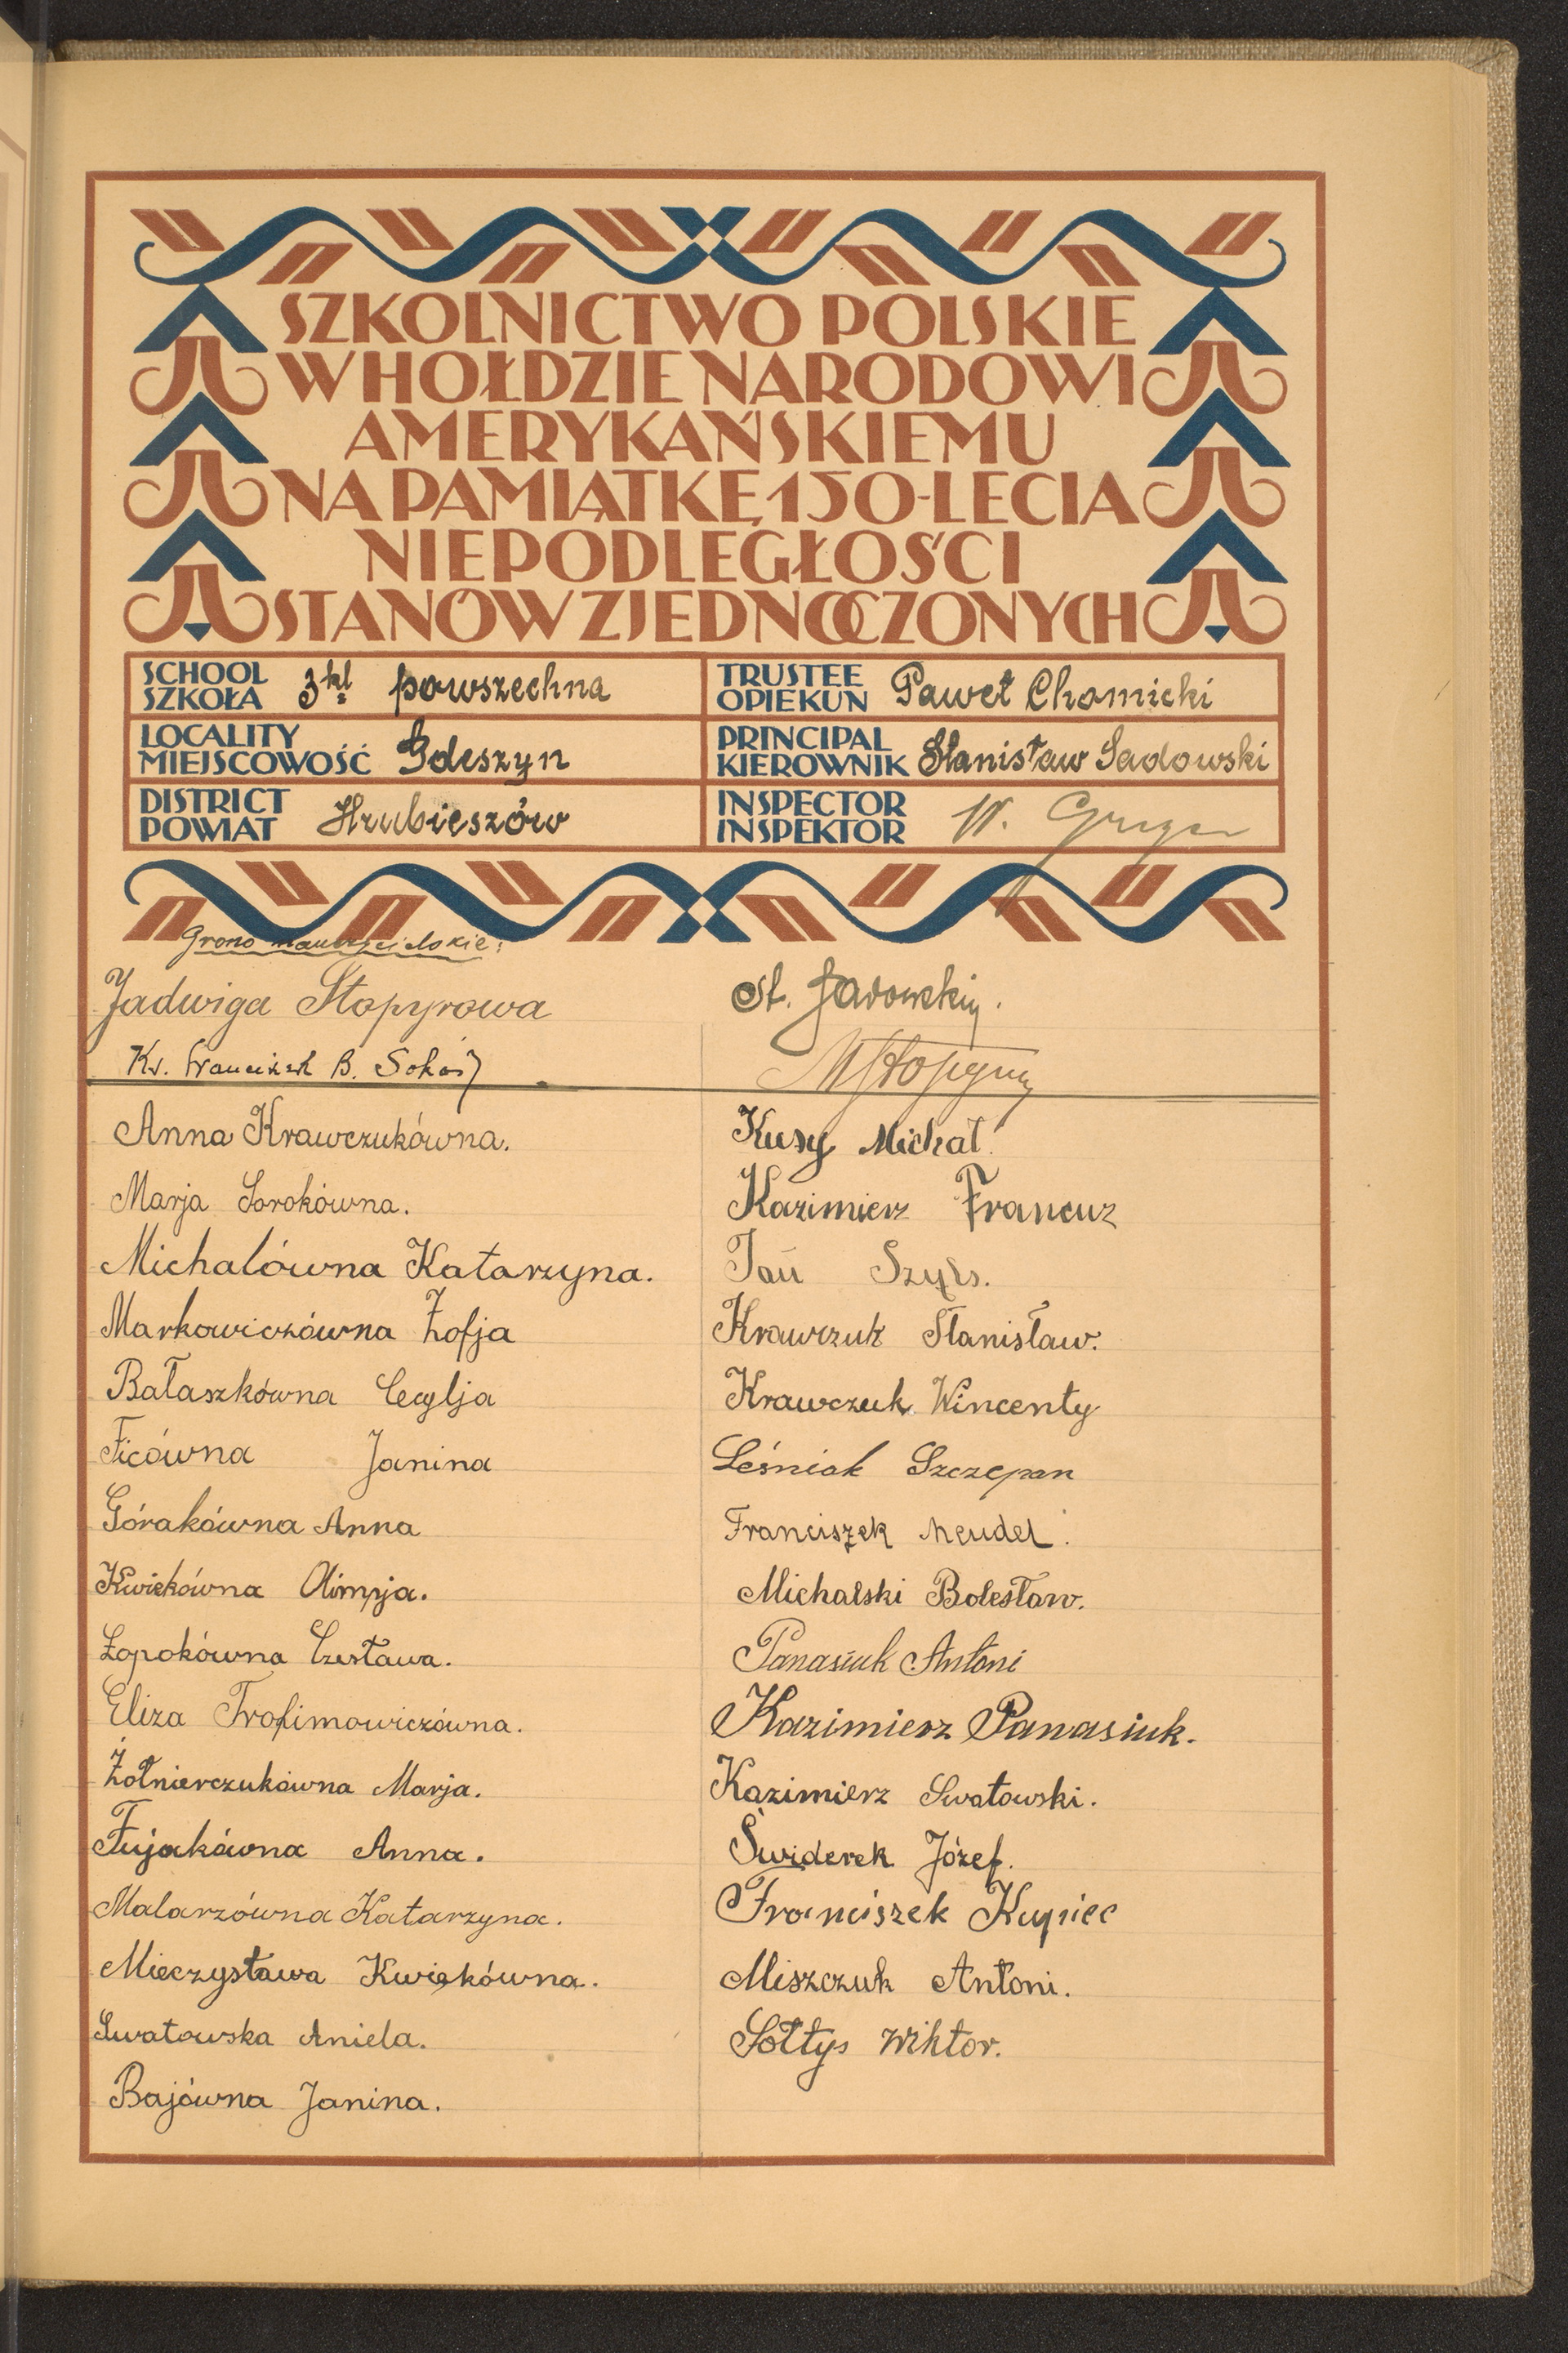 SZKOLNICTWO POLSKIE
W HOŁDZIE NARODOWI
AMERYKAŃSKIEMU
NA PAMIĄTKĘ 150-LECIA
NIEPODLEGŁOŚCI
STANÓW ZJEDNOCZONYCH
SCHOOL
SZKOŁA 3kl powszechna
LOCALITY
MIEJSCOWOŚĆ Gdeszyn
DISTRICT
POWIAT Hrubieszów
TRUSTEE
OPIEKUN Paweł Chomicki
PRINCIPAL
KIEROWNIK Stanisław Sadowski
INSPECTOR
INSPEKTOR W.
Grono nauczycielskie:
Jadwiga Stopyrowa
Ks. Franciszek B.
St. Sadowski.
MStopyra
Anna Krawczukówna.
Marja Sorokówna.
Michalówna Katarzyna.
Markowiczówna Zofja
Bałaszkówna Cecylja
Ficówna Janina
Górakówna Anna
Kwiekówna Olimpja.
Łopokówna Czesława.
Eliza Trofimowiczówna.
Żołnierczukówna Marja.
Fujakówna Anna.
Malarzówna Katarzyna.
Mieczysława Kwiekówna.
Swatowska Aniela.
Bajówna Janina.
Kusy Michał.
Kazimierz Francuz
Jan
Krawczuk Stanisław.
Krawczuk Wincenty
Leśniak Szczepan
Franciszek Meudel.
Michalski Bolesław.
Panasiuk Antoni
Kazimierz Panasiuk.
Kazimierz Swatowski.
Świderek Józef.
Franciszek Kupiec
Miszczuk Antoni.
Sołtys Wiktor.